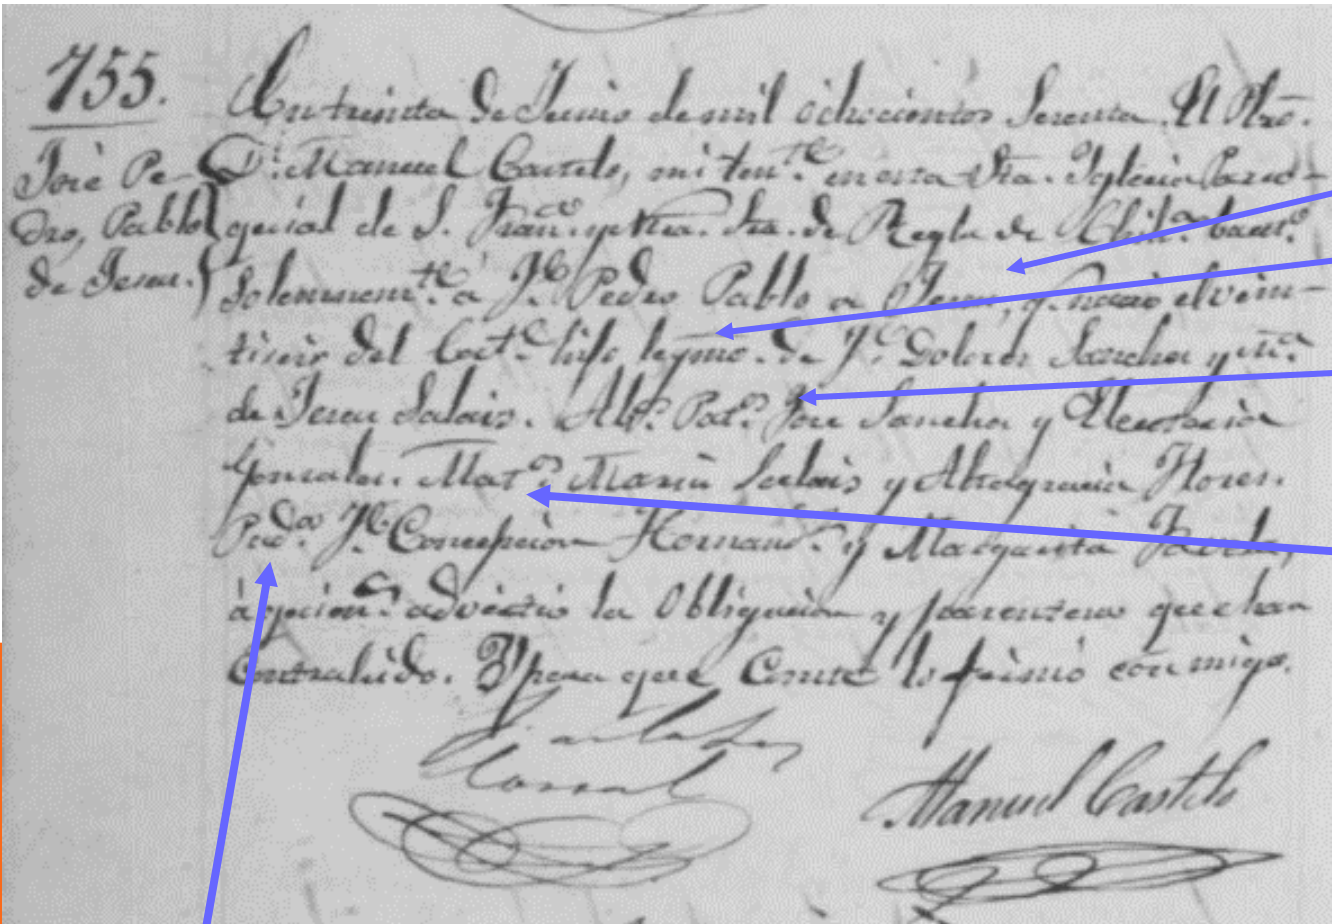 755.
José Pe-
dro, Pablo
de Jesus.
En treinta de Junio de mil ochocientos setenta. El Pbro.
D. Manuel Castelo, mi ten.te en esta Sta. Iglesia Parro-
quial de S. Fran.co y Ntra. Sra. de Regla de Chih.a baut.o
solemnem.te a J.e Pedro Pablo de Jesus, q. nació el vein-
tiseis del Corr.te hijo legmo. de J.e Dolores Sanchez y
de Jesus Salais. Ab.s Pat.s José Sanchez y
Gonzalez. Mat.s Maria Salais y Altagracia Flores.
Pad.os J.e Concepcion Hernand.z y Margarita
á quien.s advirtió la Obligacion y parentesco que han
Contraido. Y para que Conste lo firmó conmigo.
Manuel Castelo